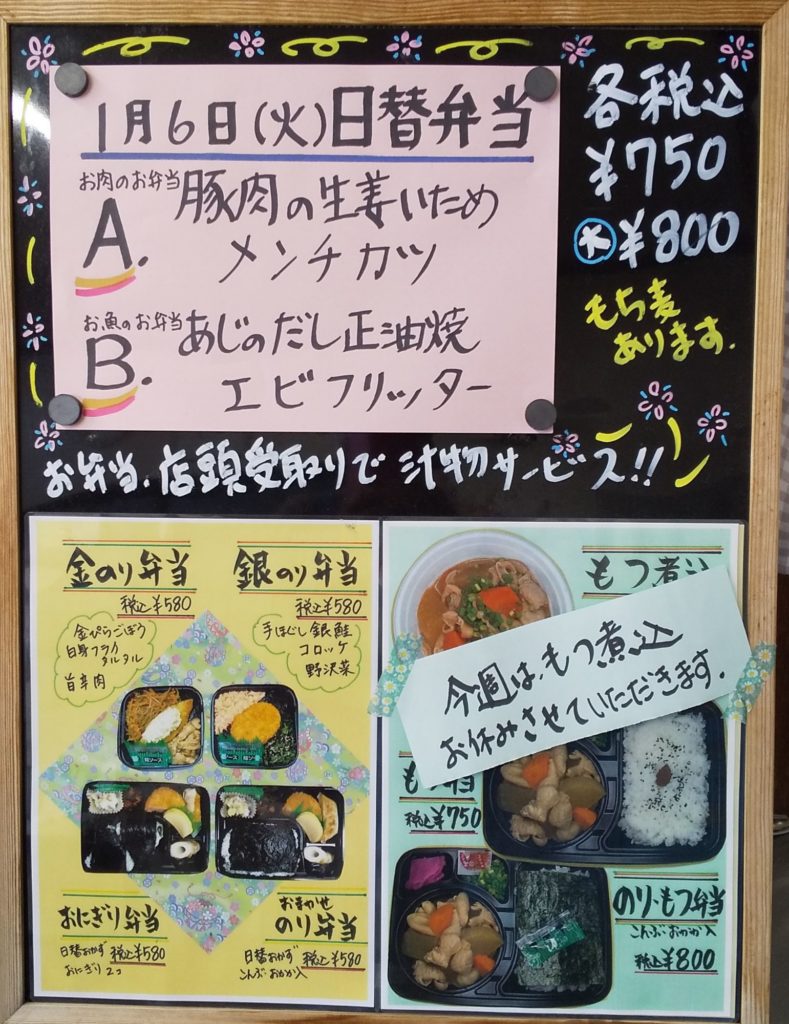 1月6日(火)日替弁当
お肉のお弁当
A.
豚肉の生姜いため
メンチカツ
お魚のお弁当
B.
あじのだし正油焼
エビフリッター
各税込
¥750
大 ¥800
もち麦
あります.
お弁当、店頭受取りで 汁物サービス!!
金のり弁当
税込¥580
金ぴらごぼう
白身フライ
タルタル
旨辛肉
銀のり弁当
税込¥580
手ほぐし銀鮭
コロッケ
野沢菜
おにぎり弁当
日替おかず 税込¥580
おにぎり 2コ
おまかせ
のり弁当
日替おかず 税込¥580
こんぶ・おかか入
もつ煮込
今週は、もつ煮込
お休みさせていただきます.
税込¥750
のり・もつ弁当
こんぶ・おかか入
税込¥800